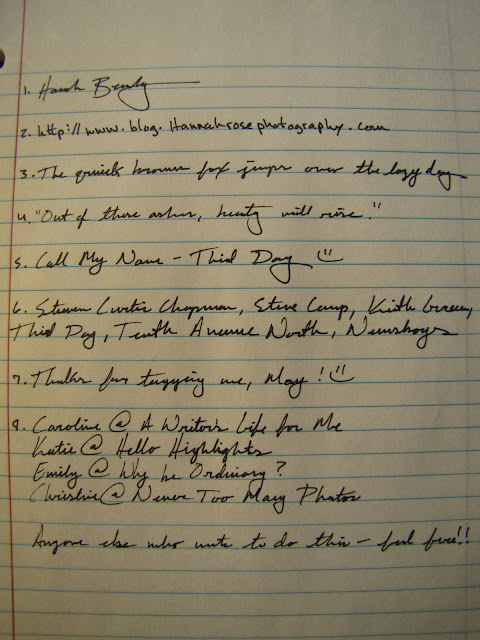 1. Hannah
2. http://www.blog.Hannahrosephotography.com
3. The quick brown fox jumps over the lazy dog
4. "Out of these ashes, beauty will rise."
5. Call My Name - Third Day
6. Steven Curtis Chapman, Steve Camp, Keith Green,
Third Day, Tenth Avenue North, Newsboys
7. Thanks for tagging me, Mary!
8. Caroline @ A Writer's Life for Me
Katie @ Hello Highlights
Emily @ Why be Ordinary?
Christine @ Never Too Many Photos
Anyone else who wants to do this - feel free!!